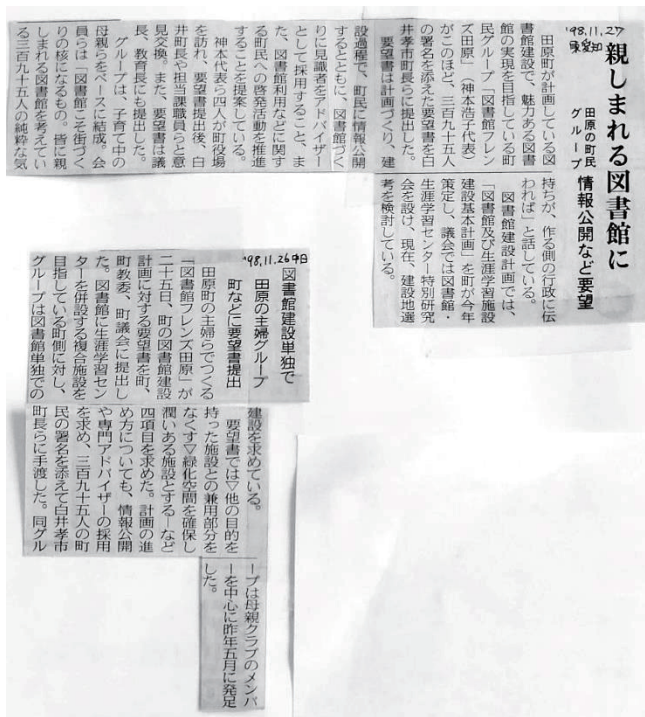 '98.11.27
東愛知
親しまれる図書館に
田原の町民
グループ
情報公開など要望
田原町が計画している図
書館建設で、魅力ある図書
館の実現を目指している町
民グループ「図書館フレン
ズ田原」(神本浩子代表)
がこのほど、三百九十五人
の署名を添えた要望書を白
井孝市町長らに提出した。
要望書は計画づくり、建
設過程で、町民に情報公開
するとともに、図書館づく
りに識者をアドバイザー
として採用すること、ま
た、図書館利用などに関す
る町民への啓発活動を推進
することを提案している。
神本代表ら四人が町役場
を訪れ、要望書提出後、白
井町長や担当課職員らと意
見交換。また、要望書は議
長、教育長にも提出した。
グループは、子育て中の
母親らをベースに結成。会
員らは「図書館こそ街づく
りの核になるもの。皆に親
しまれる図書館を考えてい
る三百九十五人の純粋な気
持ちが、作る側の行政に伝
われば」と話している。
図書館建設計画では、
「図書館及び生涯学習施設
建設基本計画」を町が今年
策定し、議会では図書館・
生涯学習センター特別研究
会を設け、現在、建設地選
考を検討している。
'98.11.26中日
図書館建設単独で
田原の主婦グループ
町などに要望書提出
田原町の主婦らでつくる
「図書館フレンズ田原」が
二十五日、町の図書館建設
計画に対する要望書を町、
町教委、町議会に提出し
た。図書館に生涯学習セン
ターを併設する複合施設を
目指している町側に対し、
グループは図書館単独での
建設を求めている。
要望書では▽他の目的を
持った施設との兼用部分を
なくす▽緑化空間を確保し
潤いある施設とする―など
四項目を求めた。計画の進
め方についても、情報公開
や専門アドバイザーの採用
を求め、三百九十五人の町
民の署名を添えて白井孝市
町長らに手渡した。同グル
ープは母親クラブのメンバ
ーを中心に昨年五月に発足
した。